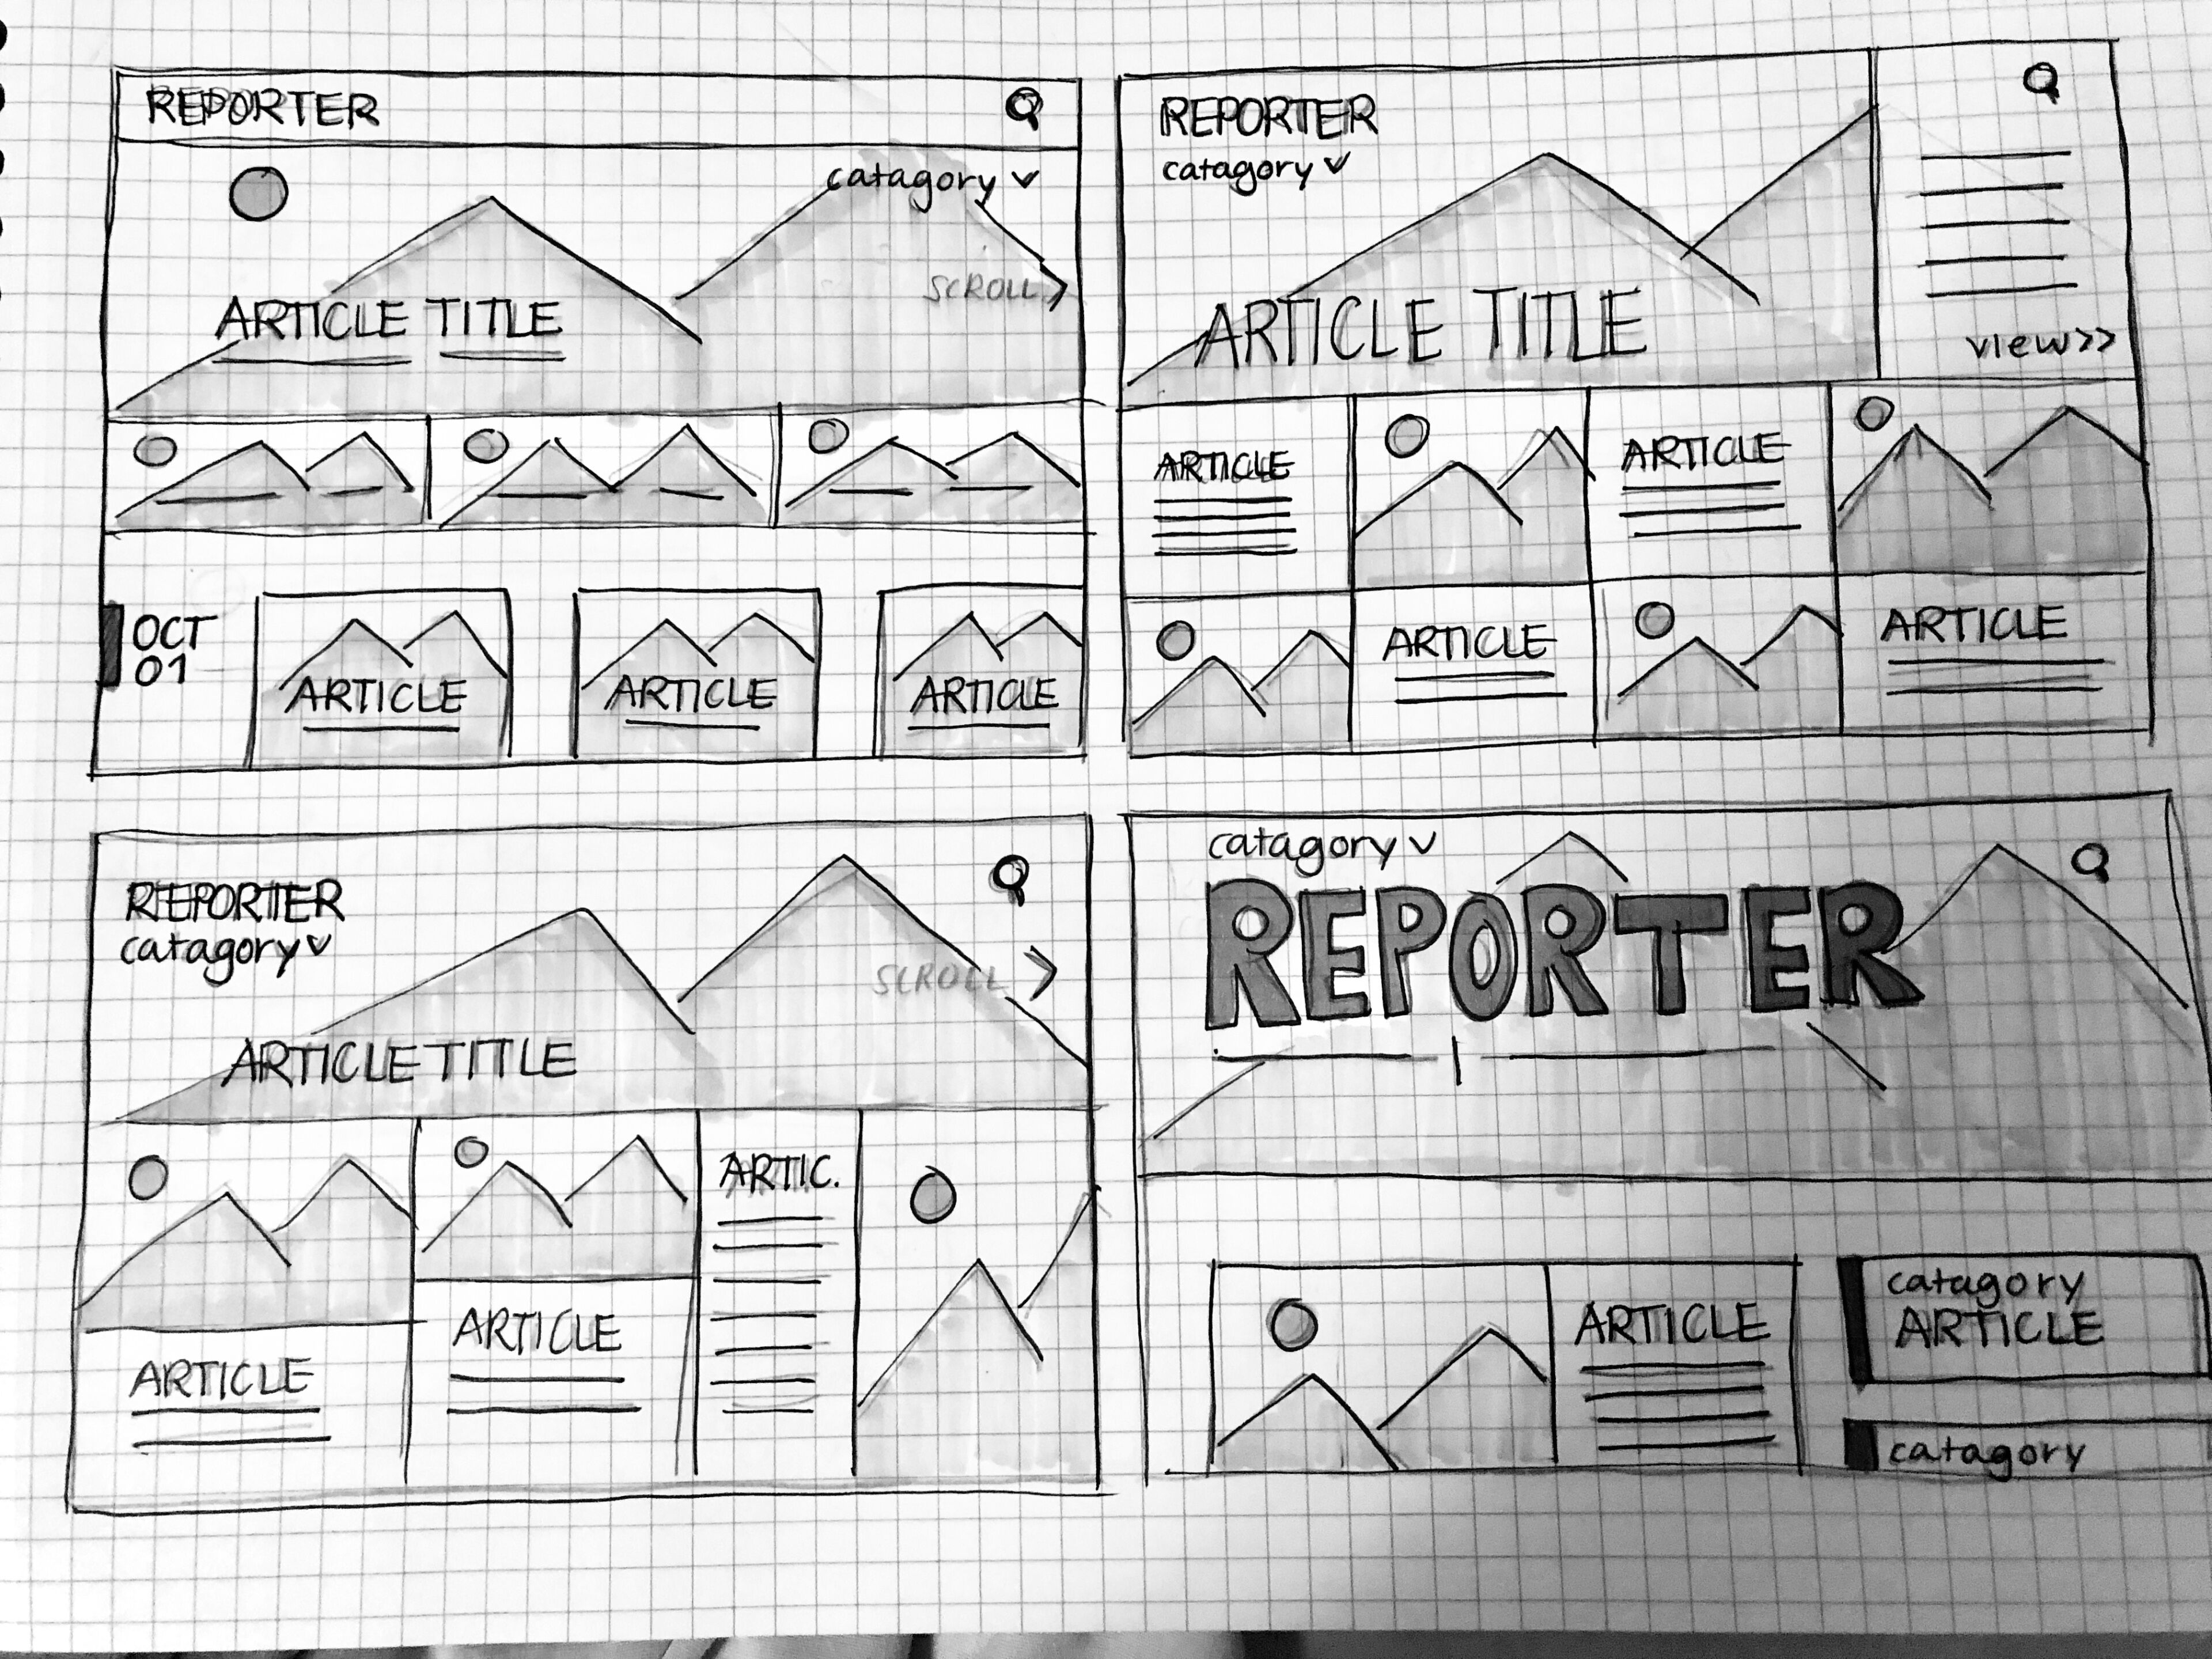 REPORTER
catagory
SCROLL
ARTICLE TITLE
OCT
01
ARTICLE
ARTICLE
ARTICLE
REPORTER
catagory
ARTICLE TITLE
view>>
ARTICLE
ARTICLE
ARTICLE
ARTICLE
REPORTER
catagory
SCROLL
ARTICLE TITLE
ARTICLE
ARTICLE
ARTIC.
catagory
REPORTER
ARTICLE
catagory
ARTICLE
catagory